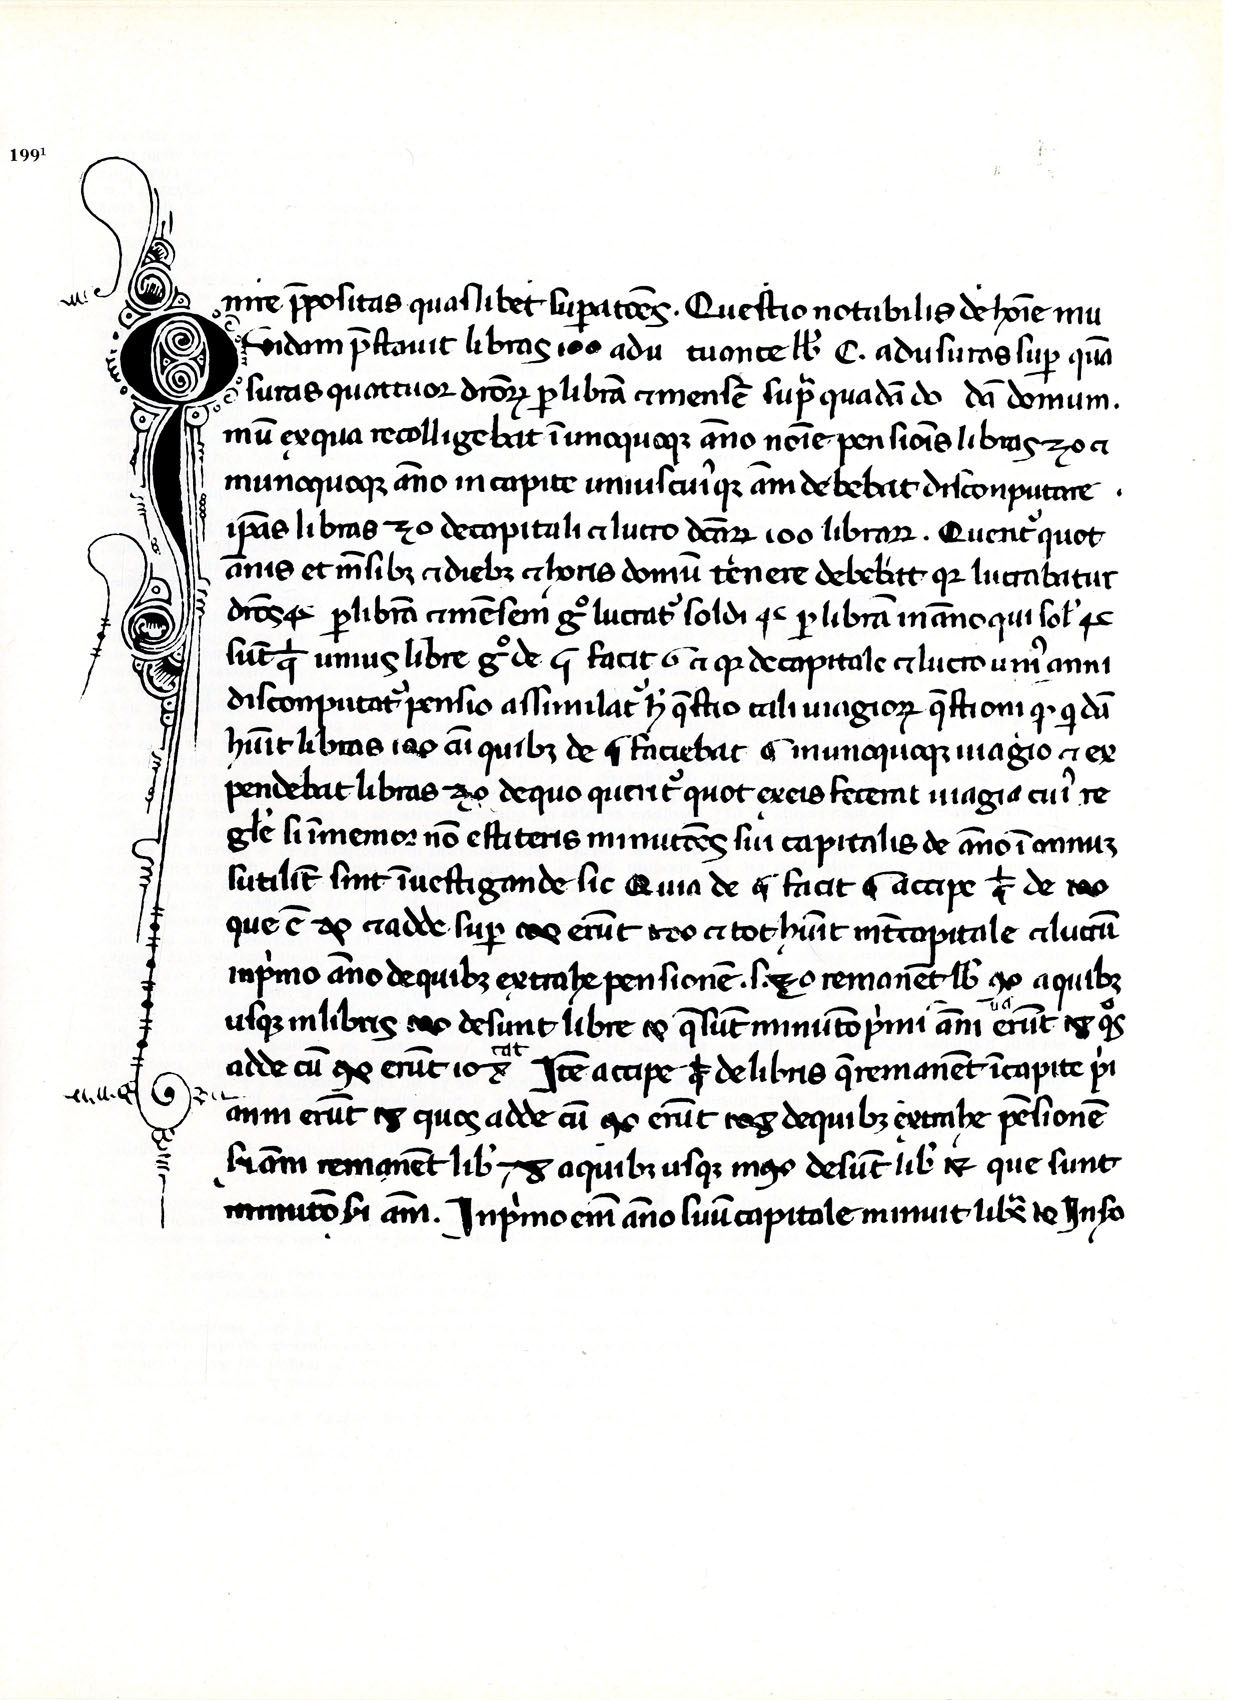 199¹
nire p̄positas quaslibet suppatōēs. Questio notabilis de hoīe mu
Quidam p̄stauit libras 100 adu tuante lb̄ C. ad usuras sup quā
suras quattuor drōꝝ p librā ⁊ mensē sup quadā do dā domum.
mū ex qua recolligebat ī unoquoqꝫ āno noīe pensiōīs libras 30 ⁊
in unoquoqꝫ āno in capite uniuscuīqꝫ āni debebat disconputare
ip̄as libras 30 de capitali ⁊ lucro dcāꝝ 100 libraꝝ. Querit᷑ quot
ānis et m̄sibꝫ ⁊ diebꝫ ⁊ horis domū tenere debebat qꝫ lucrabatur
drōs 4 p librā ⁊ mēsem gͦ lucrat᷑ soldi 4 p librā in āno qui sol᷑ 4
sūt unius libre gͦ de 4 facit 5 ⁊ qꝫ de capitale ⁊ lucro un᷑ anni
disconputat᷑ pensio assimilat᷑ h̄ q̄stio tali uiagioꝝ q̄stioni qꝫ q̄dā
hūit libras 100 cū quibꝫ de 4 faciebat 5 in unoquoqꝫ uiagio ⁊ ex
pendebat libras 30 de quo querit᷑ quot ex eis fecerat uiagia cuī re
gl̄e si īmemor nō extiteris minutōēs sui capitalis de āno ī annuꝫ
sutilit̄ sint īuestigande sic Quia de 4 facit 5 accipe ¼ de 100
que ē 25 ⁊ adde sup 100 erūt 125 ⁊ tot hūit īt capitale ⁊ lucrū
in p̄mo āno de quibꝫ extrahe pensionē. s. 30 remanēt lb̄ 95 a quibꝫ
usqꝫ in libris 100 desunt libre 5 q̄ sūt minutō p̄mi āni
adde cū 95 erūt Itē accipe ¼ de libris q̄ remanēt ī capite p̄i
anni erūt quos adde cū 95 erūt de quibꝫ extrahe pēsionē
s̄i āni remanēt lib᷑ a quibꝫ usqꝫ in 95 desūt lib᷑ que sunt
minutō s̄i āni. In p̄mo eī āno suū capitale minuit lib᷑ 5 In s̄o